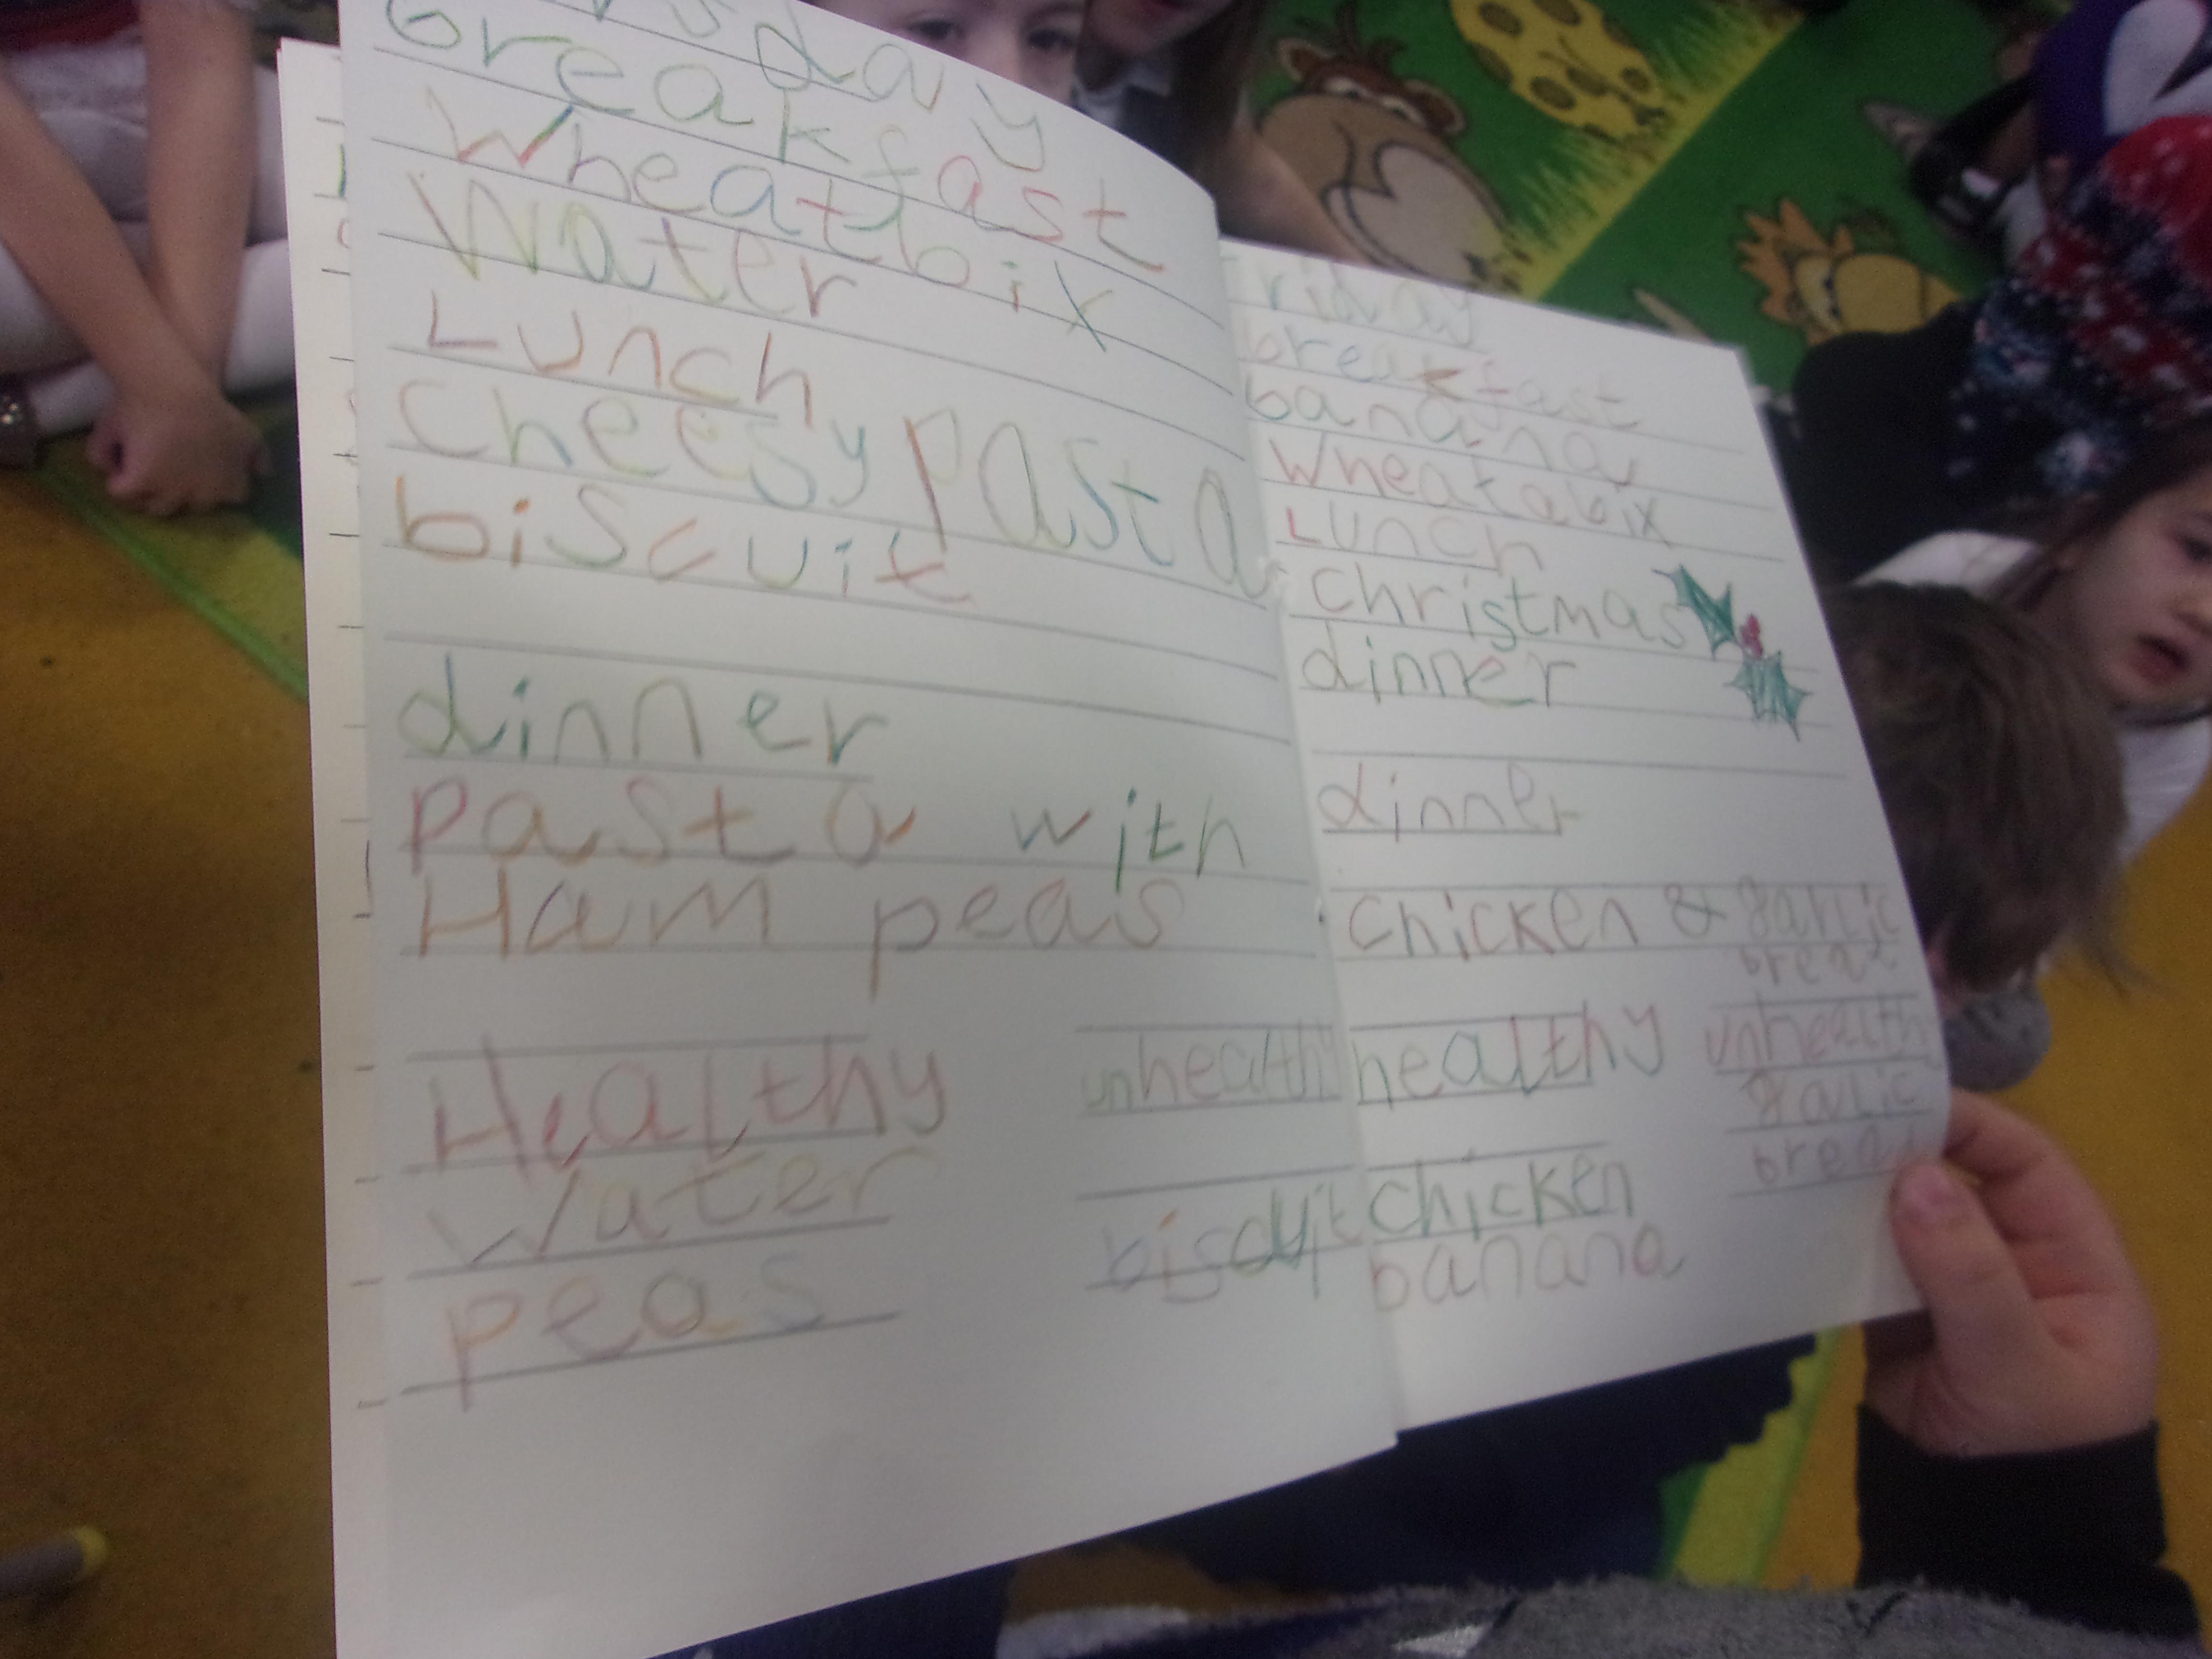 breakfast
Wheatbix
Water
Lunch
cheesy pasta
biscuit
dinner
pasta with
Ham peas
Healthy unhealthy
water
peas biscuit
Friday
breakfast
banana
Wheatabix
Lunch
christmas
dinner
dinner
chicken & garlic
bread
healthy unhealth
garlic
bread
chicken
banana